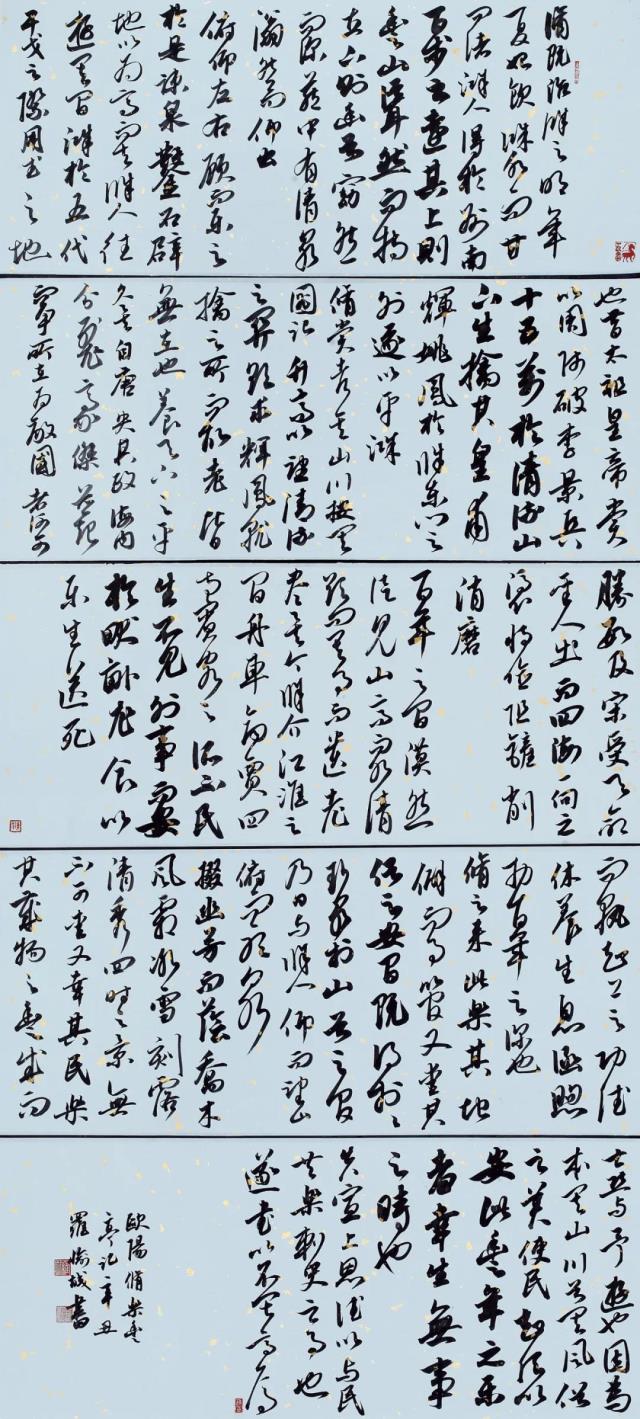 脩既治滁之明年
夏始飲滁水而甘
問諸滁人得於州南
百步之遠其上則
豐山聳然而特
立下則幽谷窈然
而深藏中有清泉
滃然而仰出
俯仰左右顧而樂之
於是疏泉鑿石辟
地以為亭而與滁人往
遊其間滁於五代
干戈之際用武之地
也昔太祖皇帝嘗
以周師破李景兵
十五萬於清流山
下生擒其皇甫
輝姚鳳於滁東門之
外遂以平滁
脩嘗考其山川按其
圖記升高以望清流
之關欲求輝鳳就
擒之所而故老皆
無在也蓋天下之平
久矣自唐失其政海內
分裂豪傑並起
而爭所在為敵國者何可
勝數及宋受天命
聖人出而四海一向之
憑恃險阻鏟削
消磨
百年之間漠然
徒見山高而水清
欲問其事而遺老
盡矣今滁介江淮之
間舟車商賈四
方賓客之所不至民
生不見外事而安
於畎畝衣食以
樂生送死
而孰知上之功德
休養生息涵煦
於百年之深也
脩之來此樂其地
僻而事簡又愛其
俗之安閒既得斯泉
於山谷之間
乃日與滁人仰而望山
俯而聽泉
掇幽芳而蔭喬木
風霜冰雪刻露
清秀四時之景無
不可愛又幸其民樂
其歲物之豐成而
喜與予遊也因為
本其山川道其風俗
之美使民知所以
安此豐年之樂
者幸生無事
之時也
夫宣上恩德以與民
共樂刺史之事也
遂書以名其亭焉
歐陽脩樂豐
亭記辛丑
羅城書